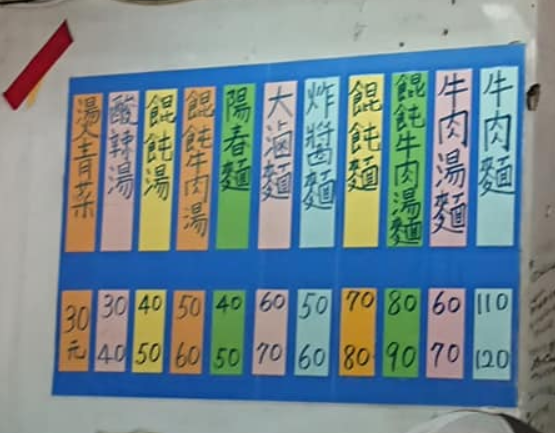 牛肉麵
牛肉湯麵
餛飩牛肉湯麵
餛飩麵
炸醬麵
大滷麵
陽春麵
餛飩牛肉湯
餛飩湯
酸辣湯
燙青菜
110
120
60
70
80
90
70
80
50
60
60
70
40
50
50
60
40
50
30
40
30
元